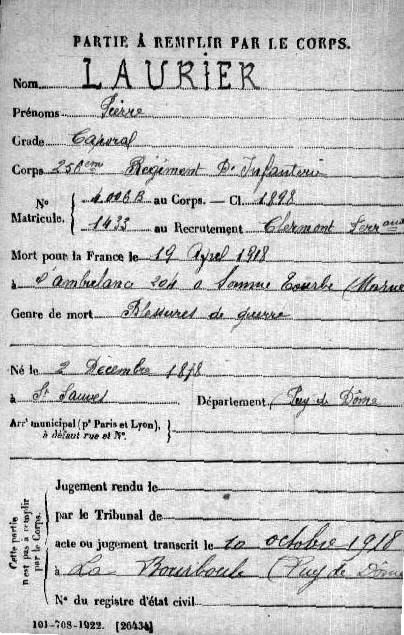 PARTIE À REMPLIR PAR LE CORPS.
Nom LAURIER
Prénoms Pierre
Grade Caporal
Corps 256em Régiment D'Infanterie
N° Matricule. { 4006B au Corps. — Cl. 1898
1433 au Recrutement Clermont Ferrand
Mort pour la France le 19 Avrel 1918
à l'ambulance 204 a Somme Tourbe (Marne
Genre de mort Blessures de guerre
Né le 2 Décembre 1878
à St Sauves Département Puy de Dôme
Arr' municipal (p' Paris et Lyon), à défaut rue et N°. }
Cette partie n'est pas à remplir par le Corps.
Jugement rendu le
par le Tribunal de
acte ou jugement transcrit le 10 octobre 1918
à La Bourboule (Puy de Dôme
N° du registre d'état civil
101-708-1922. [26434]